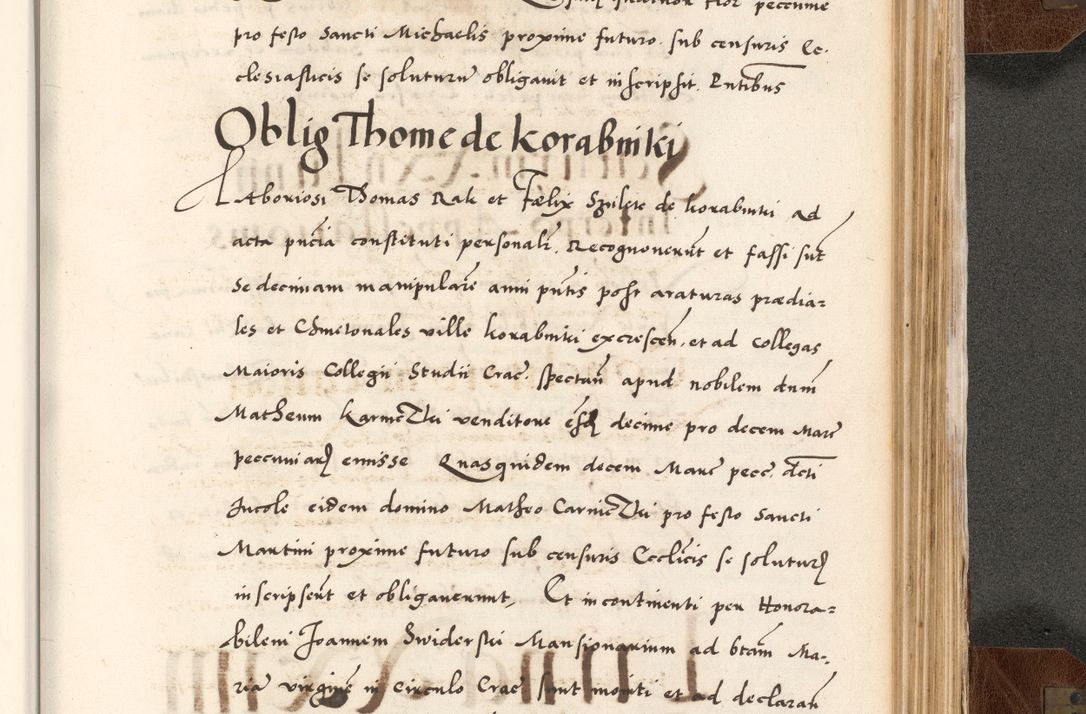 pro festo Sancti Michaelis proxime futuro. sub censuris Ec-
clesiasticis se soluturu obligauit et inscripsit. Pntibus
Oblig Thome de Korabniki
Laboriosi Thomas Rak et Fælix Szulete de korabniki ad
acta pncia constituti personalr. Recognouerut et fassi sut
se decimam manipulare anni pntis post araturas prædia-
les et Chmetonales ville korabniki excrescen. et ad Collegas
Maioris Collegii Studii Crac. spectan apud nobilem dnm
Matheum decime pro decem Marc
pecuniar emisse Quasquidem decem Marc pecc. dcti
Incole eidem domino Matheo pro festo Sancti
Martini proxime futuro sub censuris Ecclicis se solutur
inscripsert et obligauerunt, Et incontinenti per Honora-
bilem Joannem Swiderski Mansionarium ad btam Ma-
ria virgine in Circulo Crac sunt moniti et ad declaran